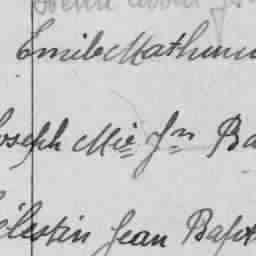 Emile Mathurin
Joseph Mie Jn Ba
Célestin Jean Bapt